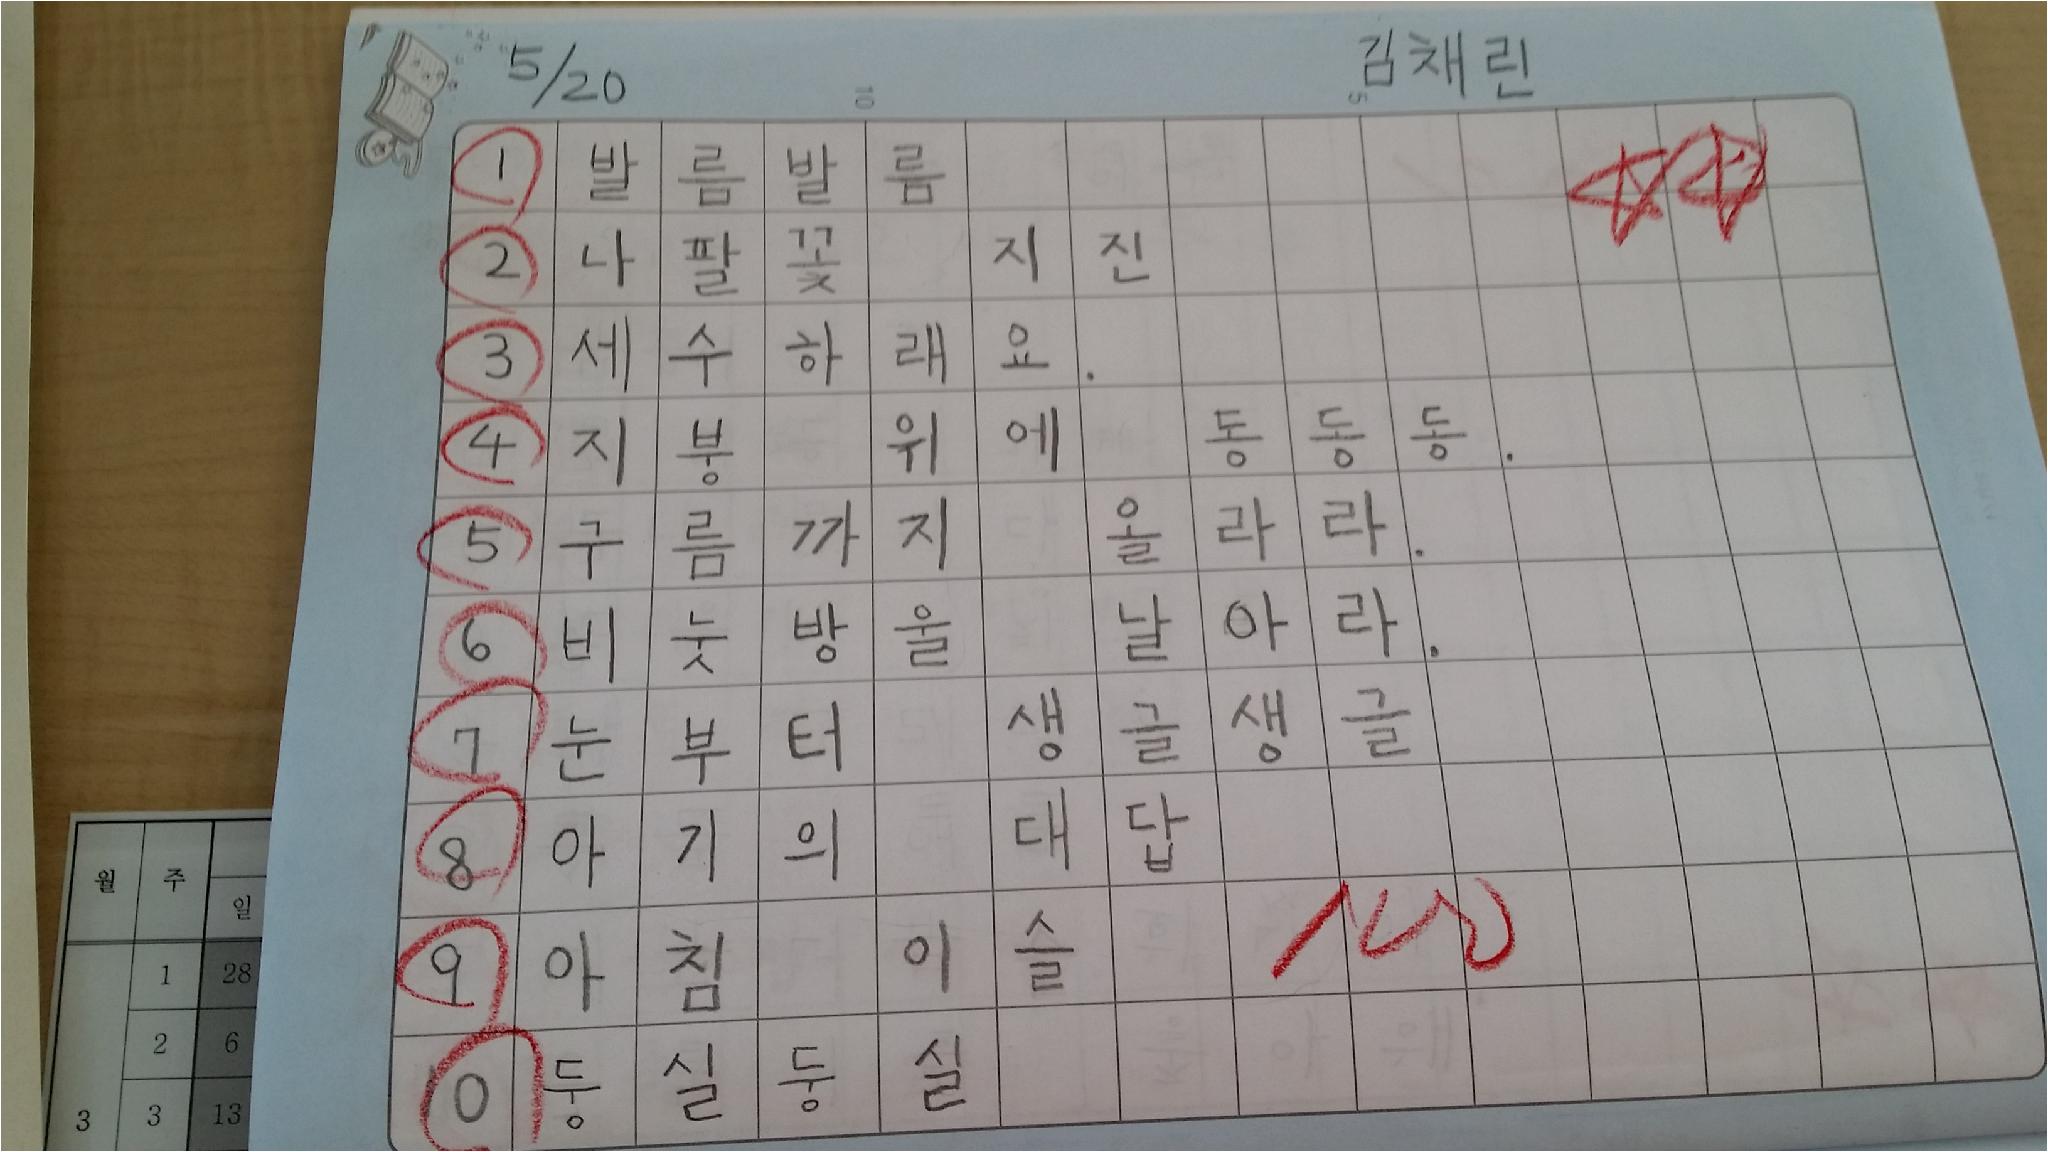 5/20 김채린
10 5
1 발름발름
2 나팔꽃 지진
3 세수하래요.
4 지붕 위에 동동동.
5 구름까지 올라라.
6 비눗방울 날아라.
7 눈부터 생글생글
8 아기의 대답
9 아침 이슬
10 둥실둥실
월 주
일
1 28
2 6
3 3 13